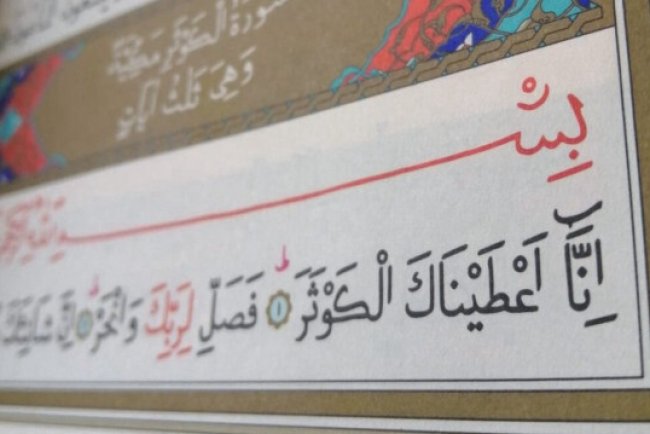 سُورَةُ الْكَوْثَرِ مَكِّيَّةٌ
وَهِيَ ثَلٰثُ اٰيَاتٍ
بِسْــــمِ اللّٰهِ
اِنَّٓا اَعْطَيْنَاكَ الْكَوْثَرَۜ ﴿١﴾ فَصَلِّ لِرَبِّكَ وَانْحَرْۜ ﴿٢﴾ اِنَّ شَانِئَكَ